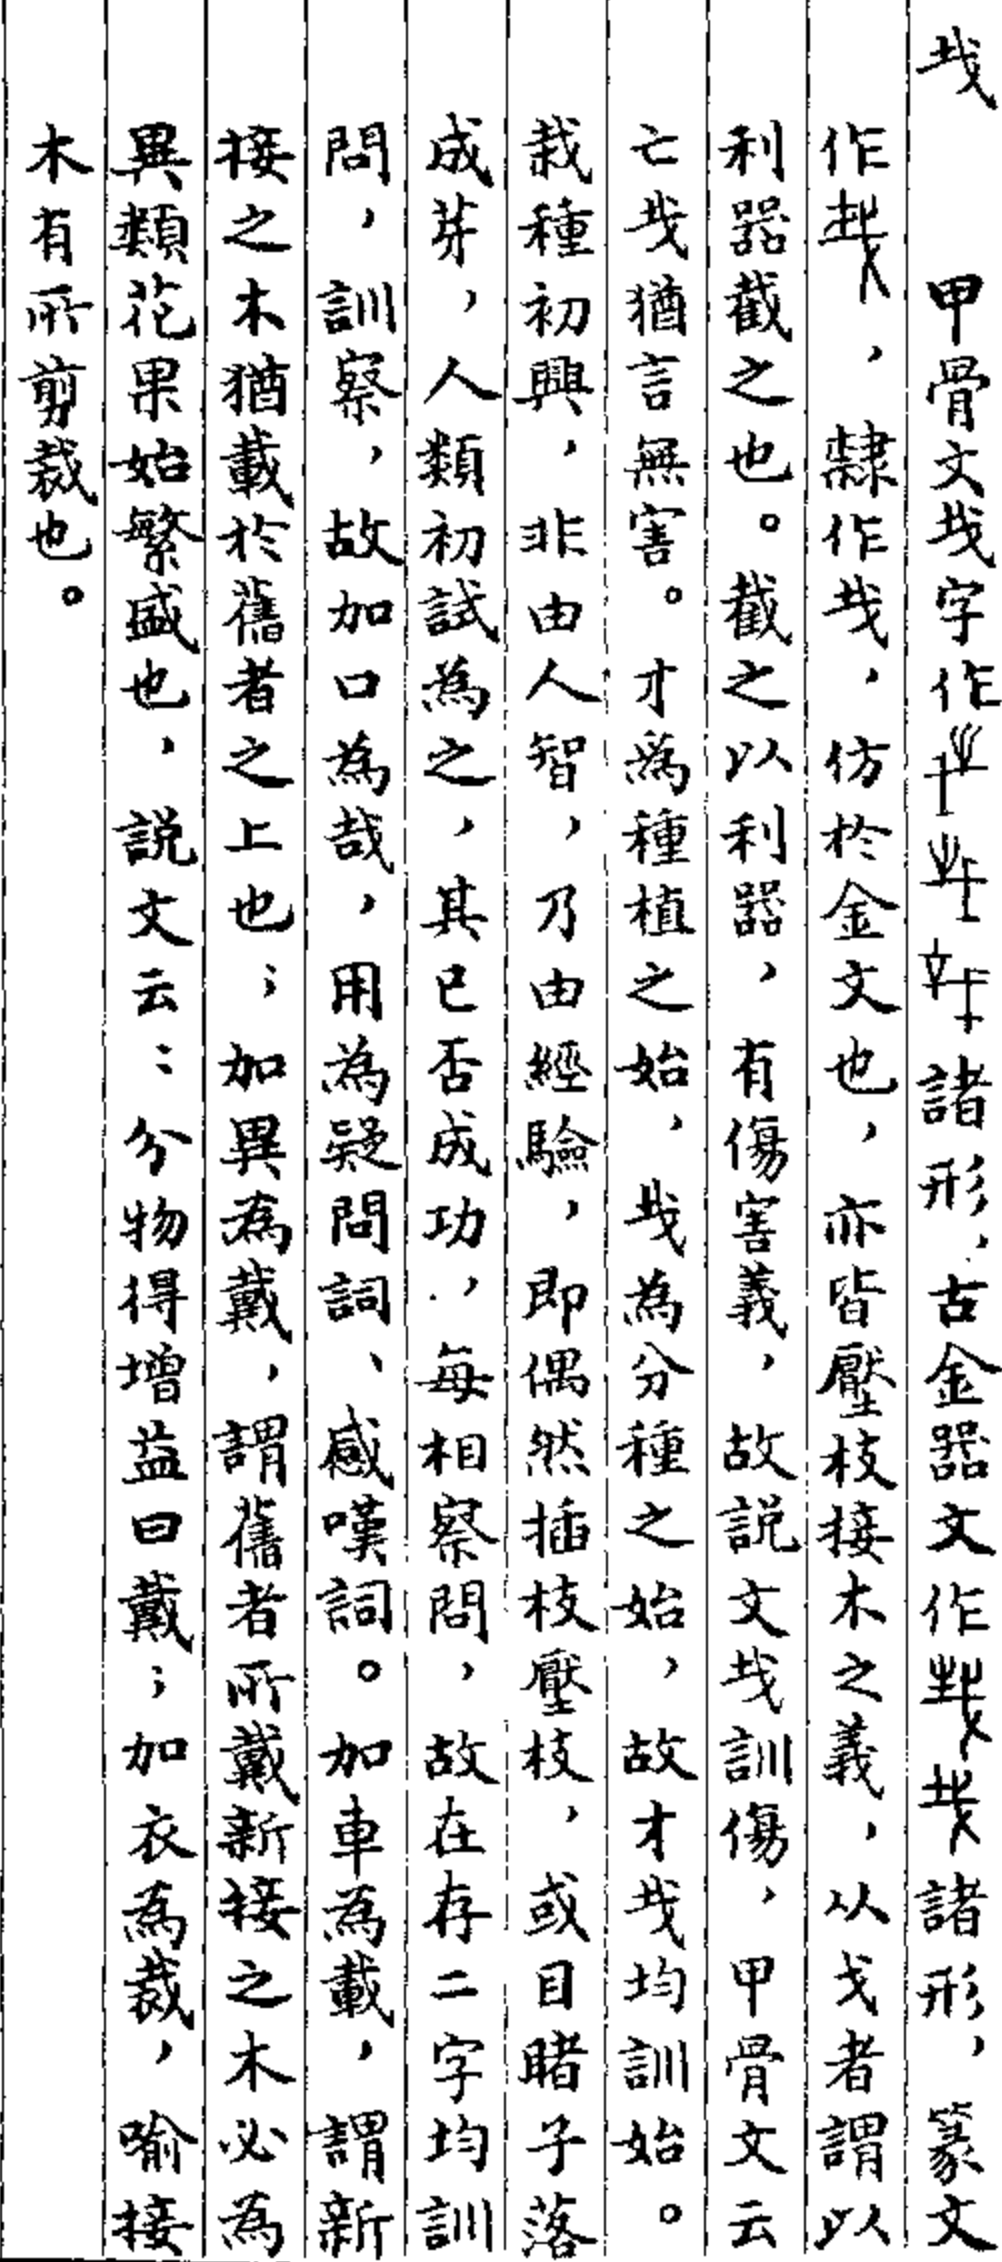 𢦏　甲骨文𢦏字作諸形，古金器文作諸形，篆文
作，隸作𢦏，仿於金文也，亦皆壓枝接木之義，从戈者謂以
利器截之也。截之以利器，有傷害義，故説文𢦏訓傷，甲骨文云
亡𢦏猶言無害。才為種植之始，𢦏為分種之始，故才𢦏均訓始。
栽種初興，非由人智，乃由經驗，即偶然插枝壓枝，或目睹子落
成芽，人類初試為之，其已否成功，每相察問，故在存二字均訓
問，訓察，故加口為哉，用為疑問詞、感嘆詞。加車為載，謂新
接之木猶載於舊者之上也；加異為戴，謂舊者所戴新接之木必為
異類花果始繁盛也，説文云：分物得增益曰戴；加衣為裁，喻接
木有所剪裁也。